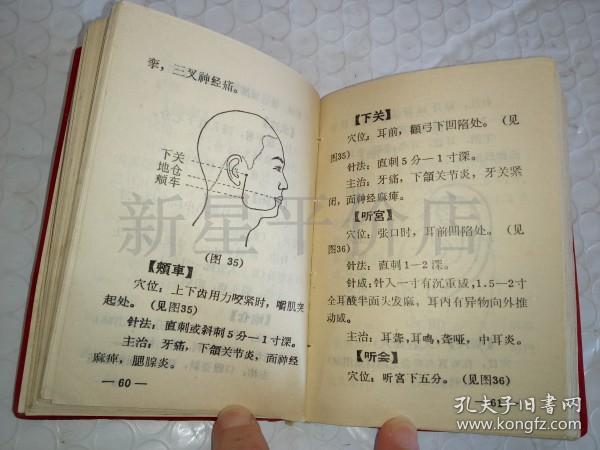 挛，三叉神经痛。
下关
地仓
颊车
(图 35)
【頰車】
穴位：上下齿用力咬紧时，嚼肌突
起处。（见图35）
针法：直刺或斜刺5分—1寸深。
主治：牙痛，下颌关节炎，面神经
麻痺，腮腺炎。
— 60 —
【下关】
穴位：耳前，颧弓下凹陷处。（见
图35）
针法：直刺5分—1寸深。
主治：牙痛，下颌关节炎，牙关紧
闭，面神经麻痺。
【听宫】
穴位：张口时，耳前凹陷处。（见
图36）
针法：直刺1—2深。
针感：针入一寸有沉重感，1.5—2寸
全耳酸半面头发麻，耳内有异物向外推
动感。
主治：耳聋，耳鸣，聋哑，中耳炎。
【听会】
穴位：听宫下五分。（见图36）
— 61 —
新星平价店
孔夫子旧书网
www.kongfz.com